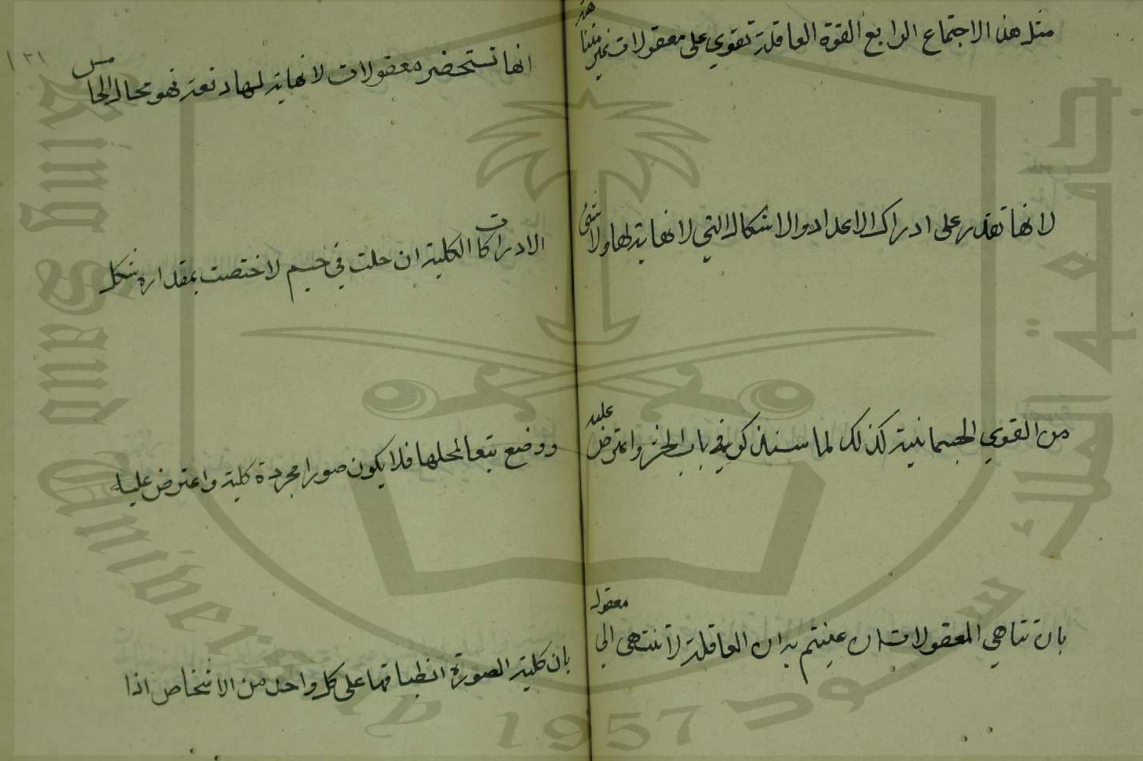 مثل هذا الاجتماع الرابع القوة العاقلة تقوي على معقولات غير متناهية
لانها تقدر على ادراك الاعداد والاشكال التي لا نهاية لها ولا شئ
من القوي الجسمانية كذلك لما سنذكر في باب الحشر واعترض عليه
بان تناهي المعقولات ان عينتم به ان العاقلة لا تنتهى الي معقول
١٢١
انها تستحضر معقولات لا نهاية لها دفعة فهو محال الخامس
الادراكات الكلية ان حلت في جسم لاختصت بمقدار وشكل
ووضع تبعا لمحلها فلا يكون صورا مجردة كلية واعترض عليه
بان كلية الصورة انطباقها على كل واحد من الاشخاص اذا
جامعة الملك سعود
King Saud University
1957